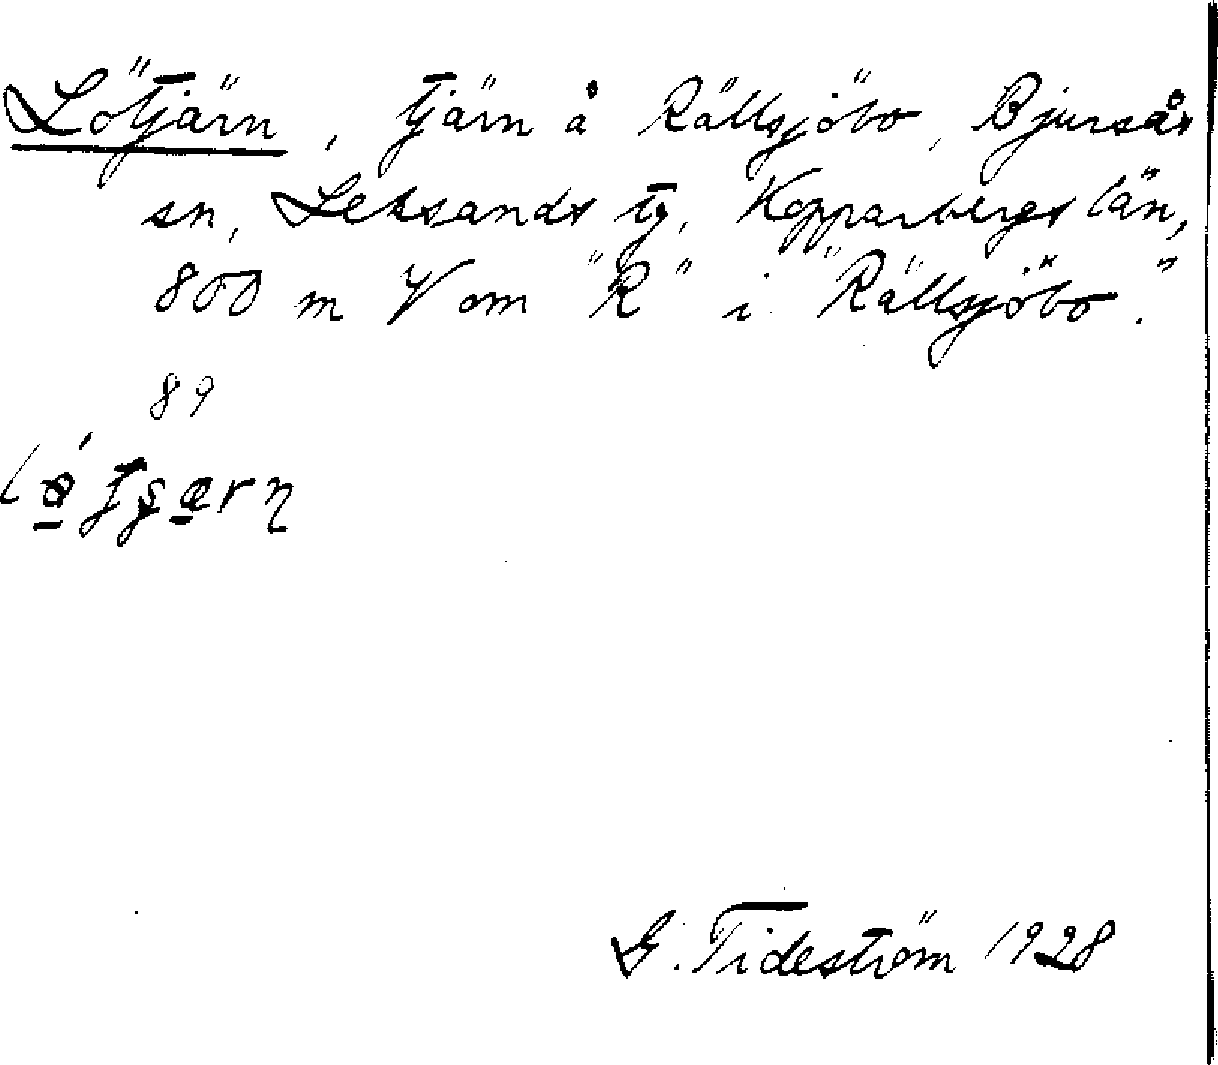 Lötjärn, tjärn å Rällsjöbo, Bjursås
sn, Leksands tg, Kopparbergs län,
800 m V om "R" i "Rällsjöbo".
89
G. Tideström 1928